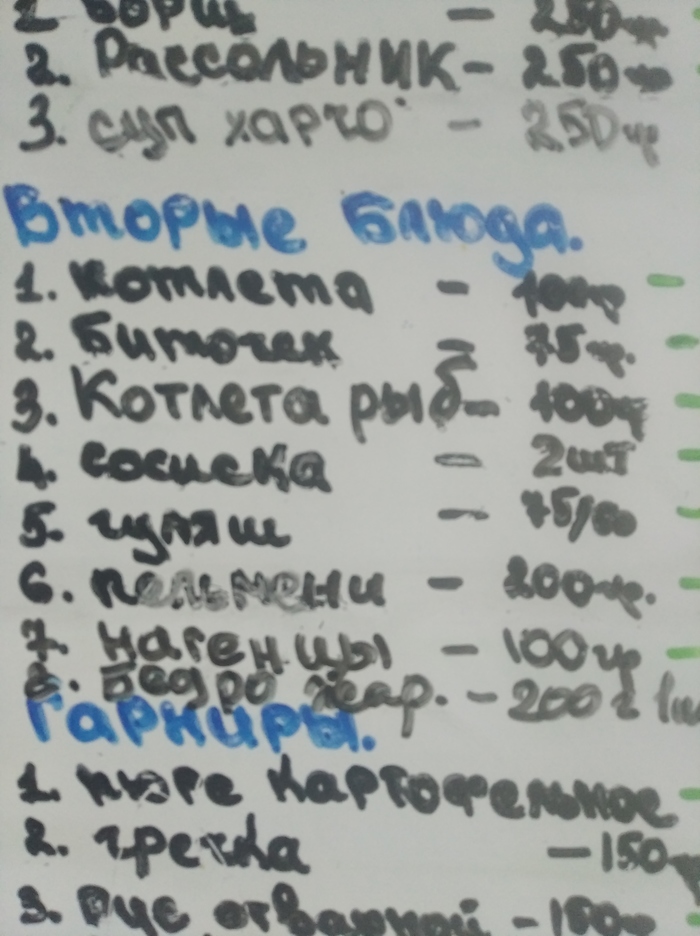 Борщ - 250гр
2. Рассольник - 250гр
3. суп харчо - 250гр
Вторые блюда.
1. котлета - 100гр
2. биточек - 75гр.
3. Котлета рыб - 100г
4. сосиска - 2шт
5. гуляш - 75/50
6. пельмени - 200гр.
7. нагенцы - 100гр
8. Бедро жар. - 200г
Гарниры.
1. пюре картофельное
2. гречка - 150
3. Рис отварной - 150г